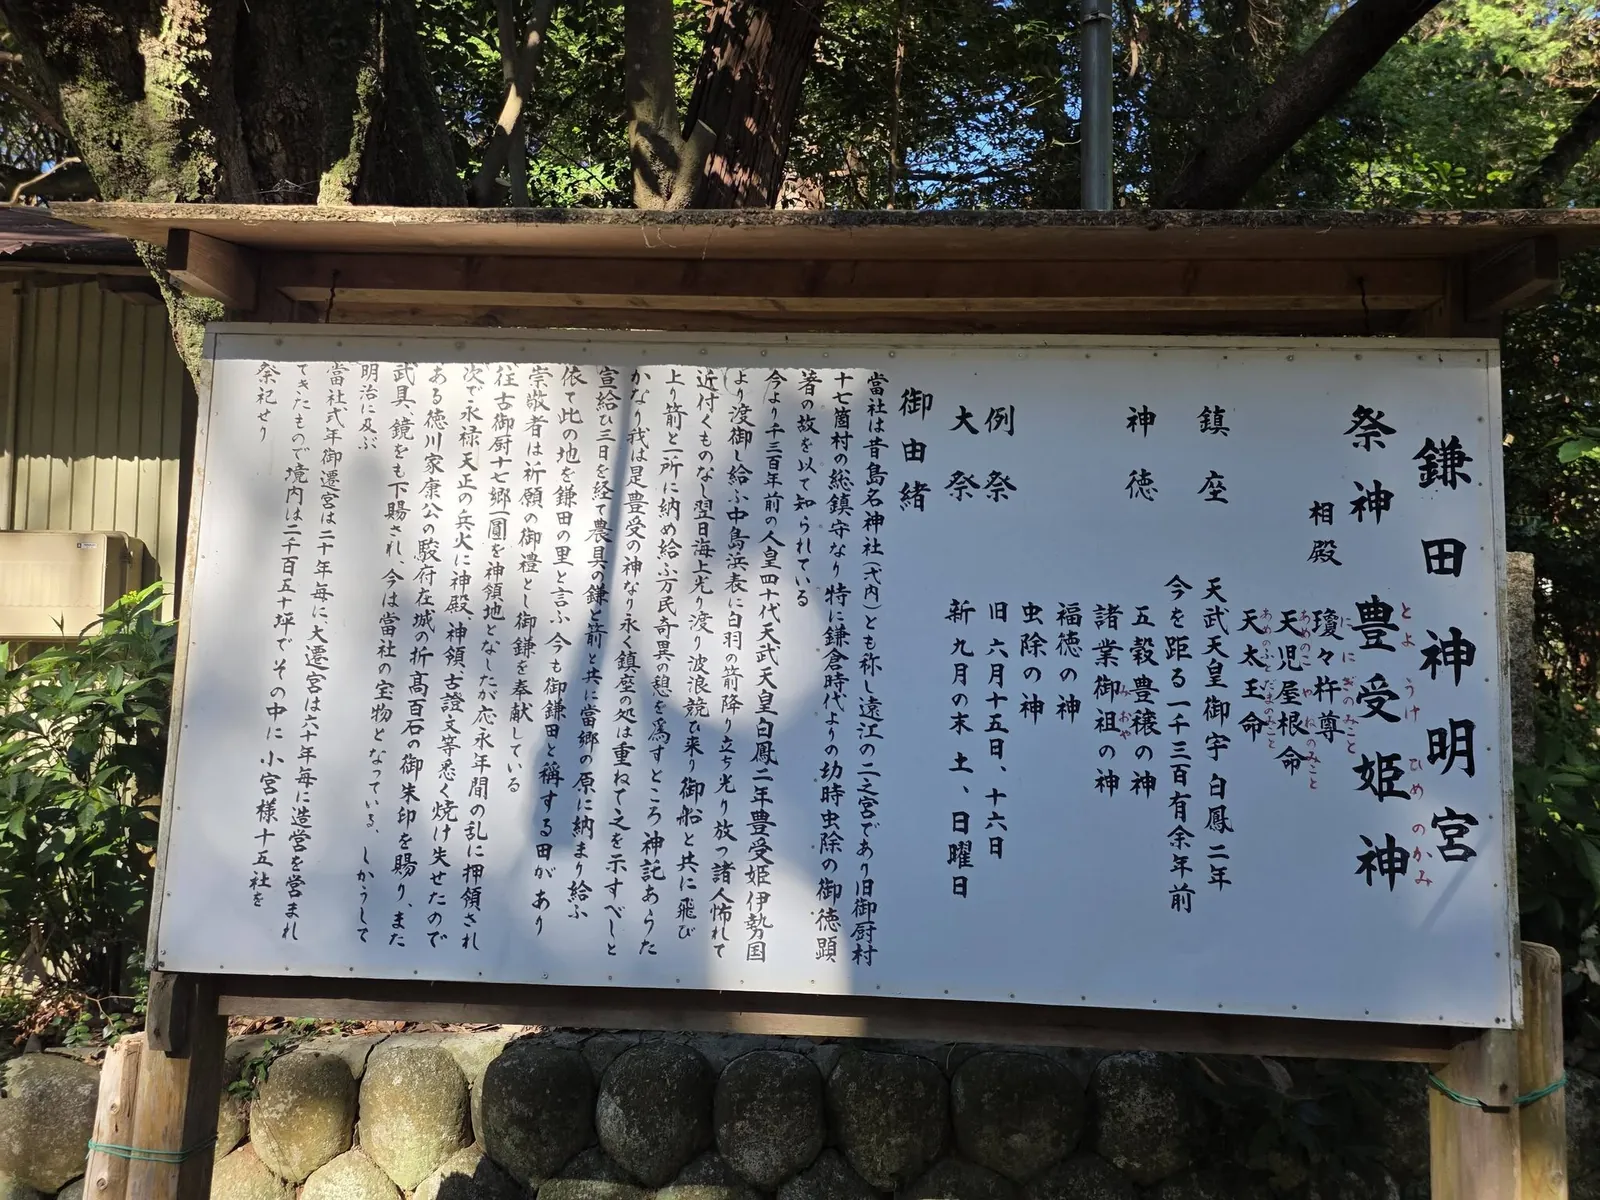 鎌田神明宮
祭神 豊受姫神
とようけひめのかみ
相殿 瓊々杵尊
ににぎのみこと
天児屋根命
あめのこやねのみこと
天太玉命
あめのふとだまのみこと
鎮座 天武天皇御宇白鳳二年
今を距る一千三百有余年前
神徳 五穀豊穣の神
諸業御祖の神
みおや
福徳の神
虫除の神
例祭 旧六月十五日、十六日
大祭 新九月の末土、日曜日
御由緒
當社は昔島名神社(弐内)とも称し遠江の二之宮であり旧御厨村
十七箇村の総鎮守なり特に鎌倉時代よりの功時虫除の御徳顕
著の故を以て知られている
今より千三百年前の人皇四十代天武天皇白鳳二年豊受姫伊勢国
より渡御し給ふ中島浜表に白羽の箭降り立ち光り放つ諸人怖れて
近付くものなし翌日海上光り渡り波浪競ひ来り御船と共に飛び
上り箭と一所に納め給ふ万民奇異の憩を為すところ神託あらた
かなり我は是豊受の神なり永く鎮座の処は重ねて之を示すべしと
宣給ひ三日を経て農具の鎌と箭と共に當郷の原に納まり給ふ
依て此の地を鎌田の里と言ふ今も御鎌田と稱する田があり
崇敬者は祈願の御禮とし御鎌を奉献している
往古御厨十七郷一圓を神領地となしたが応永年間の乱に押領され
次で永禄天正の兵火に神殿、神領、古證文等悉く焼け失せたので
ある徳川家康公の駿府在城の折高百石の御朱印を賜り、また
武具、鏡をも下賜され、今は當社の宝物となっている、しかうして
明治に及ぶ
當社式年御遷宮は二十年毎に、大遷宮は六十年毎に造営を営まれ
てきたもので境内は二千百五十坪でその中に小宮様十五社を
祭祀せり